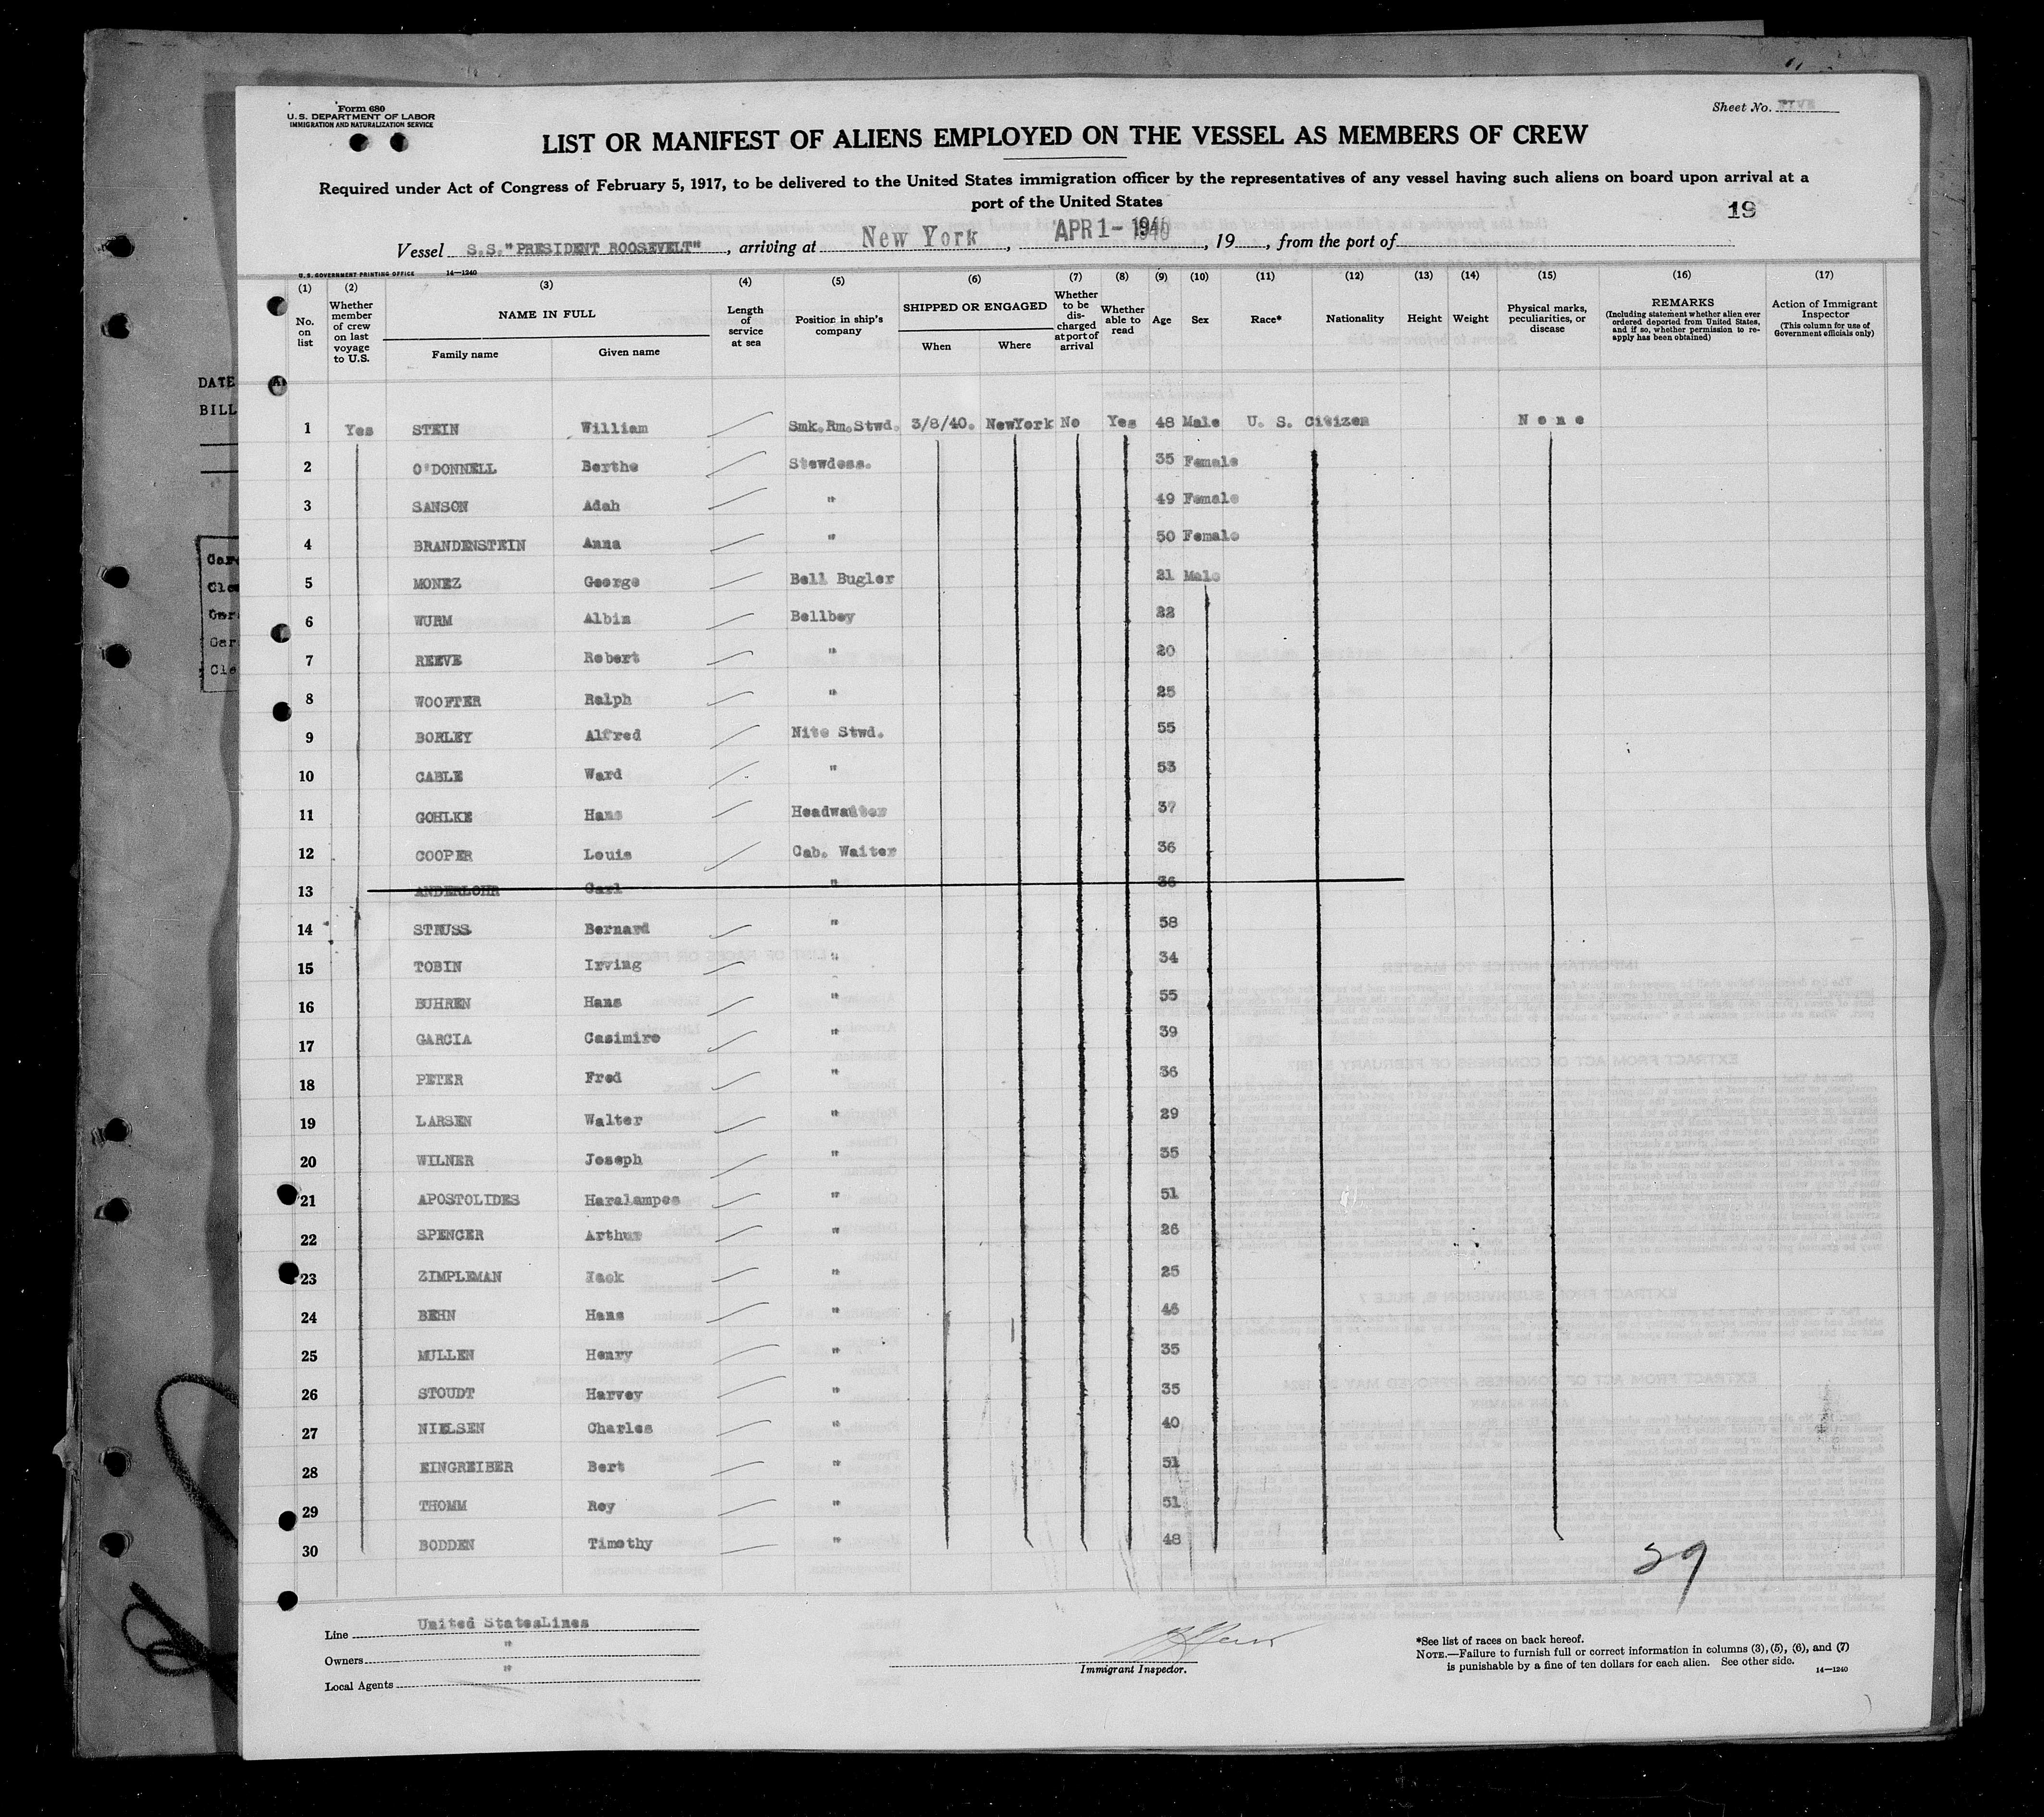 Form 680
U. S. DEPARTMENT OF LABOR
IMMIGRATION AND NATURALIZATION SERVICE
Sheet No. FIVE
LIST OR MANIFEST OF ALIENS EMPLOYED ON THE VESSEL AS MEMBERS OF CREW
Required under Act of Congress of February 5, 1917, to be delivered to the United States immigration officer by the representatives of any vessel having such aliens on board upon arrival at a
port of the United States
19
Vessel S.S."PRESIDENT ROOSEVELT", arriving at New York, APR 1 - 1940, 19, from the port of
U. S. GOVERNMENT PRINTING OFFICE 14—1240
(1) (2) (3) (4) (5) (6) (7) (8) (9) (10) (11) (12) (13) (14) (15) (16) (17)
No. on list
Whether member of crew on last voyage to U.S.
NAME IN FULL
Family name Given name
Length of service at sea
Position in ship's company
SHIPPED OR ENGAGED
When Where
Whether to be discharged at port of arrival
Whether able to read
Age Sex Race* Nationality Height Weight
Physical marks, peculiarities, or disease
REMARKS
(Including statement whether alien ever ordered deported from United States, and if so, whether permission to re-apply has been obtained)
Action of Immigrant Inspector
(This column for use of Government officials only)
DATE
BILL
1 Yes STEIN William Smk.Rm.Stwd. 3/8/40. NewYork No Yes 48 Male U. S. Citizen None
2 O'DONNELL Berthe Stewdess. 35 Female
3 SANSON Adah " 49 Female
4 BRANDENSTEIN Anna " 50 Female
5 MONEZ George Bell Bugler 21 Male
6 WURM Albin Bellboy 22
7 REEVE Robert " 20
8 WOOFTER Ralph " 25
9 BORLEY Alfred Nite Stwd. 55
10 CABLE Ward " 53
11 GOHLKE Hans Headwaiter 37
12 COOPER Louis Cab. Waiter 36
13 ANDERLOHR Carl " 36
14 STRUSS Bernard " 58
15 TOBIN Irving " 34
16 BUHREN Hans " 55
17 GARCIA Casimiro " 39
18 PETER Fred " 36
19 LARSEN Walter " 29
20 WILNER Joseph " 35
21 APOSTOLIDES Haralampos " 51
22 SPENCER Arthur " 26
23 ZIMPLEMAN Jack " 25
24 BEHN Hans " 46
25 MULLEN Henry " 35
26 STOUDT Harvey " 35
27 NIELSEN Charles " 40
28 EINGREIBER Bert " 51
29 THOMM Roy " 51
30 BODDEN Timothy " 48
29
Line United StatesLines
Owners "
Local Agents "
Immigrant Inspector.
*See list of races on back hereof.
NOTE.—Failure to furnish full or correct information in columns (3), (5), (6), and (7)
is punishable by a fine of ten dollars for each alien. See other side.
14—1240